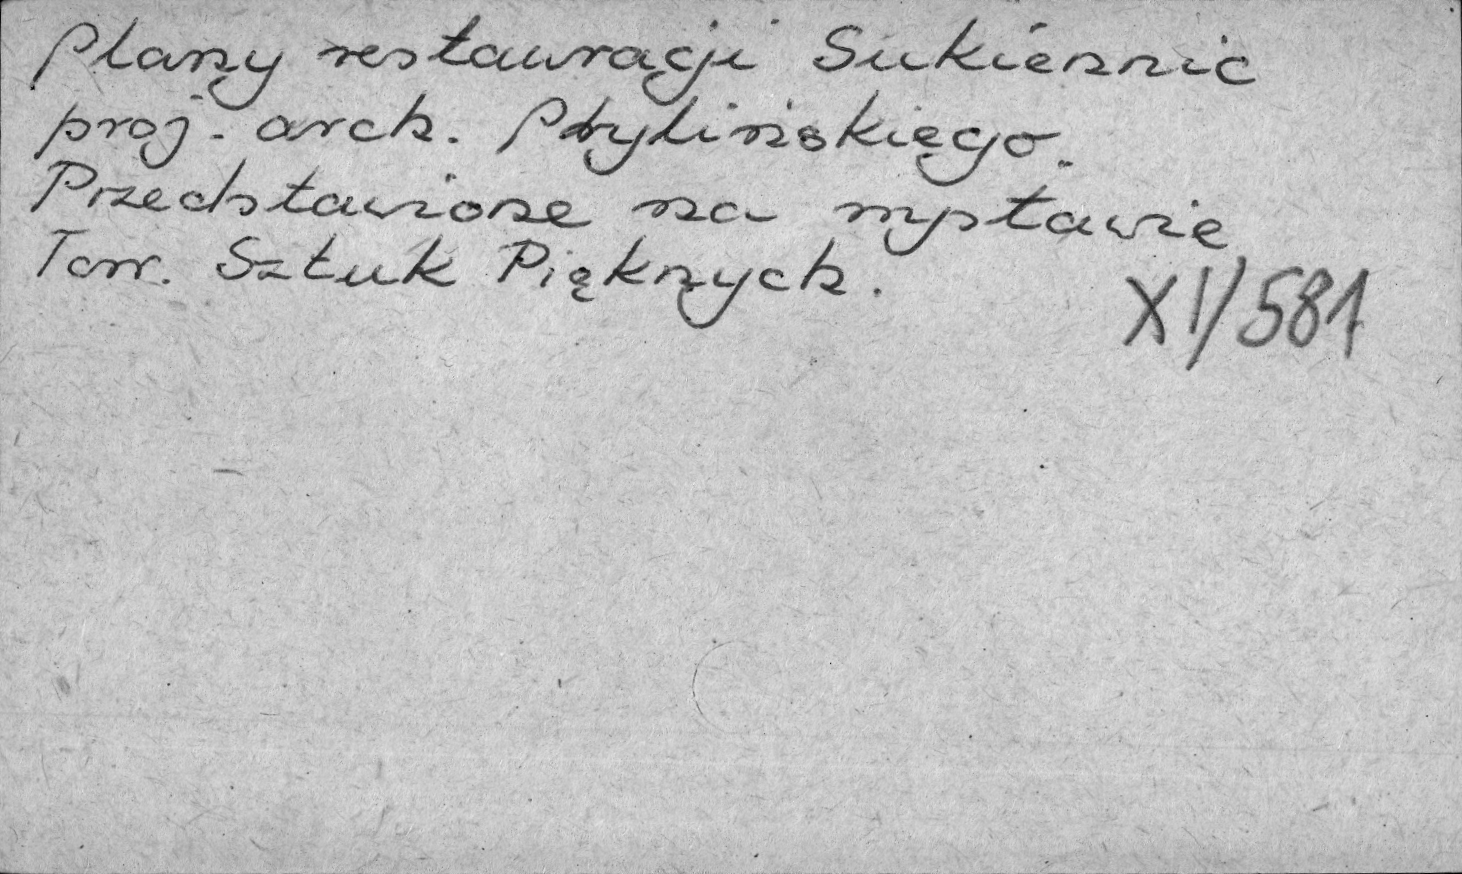 Plany restauracji Sukiennic
proj. arch. Prylińskiego.
Przedstawione na wystawie
Tow. Sztuk Pięknych.
XI/581